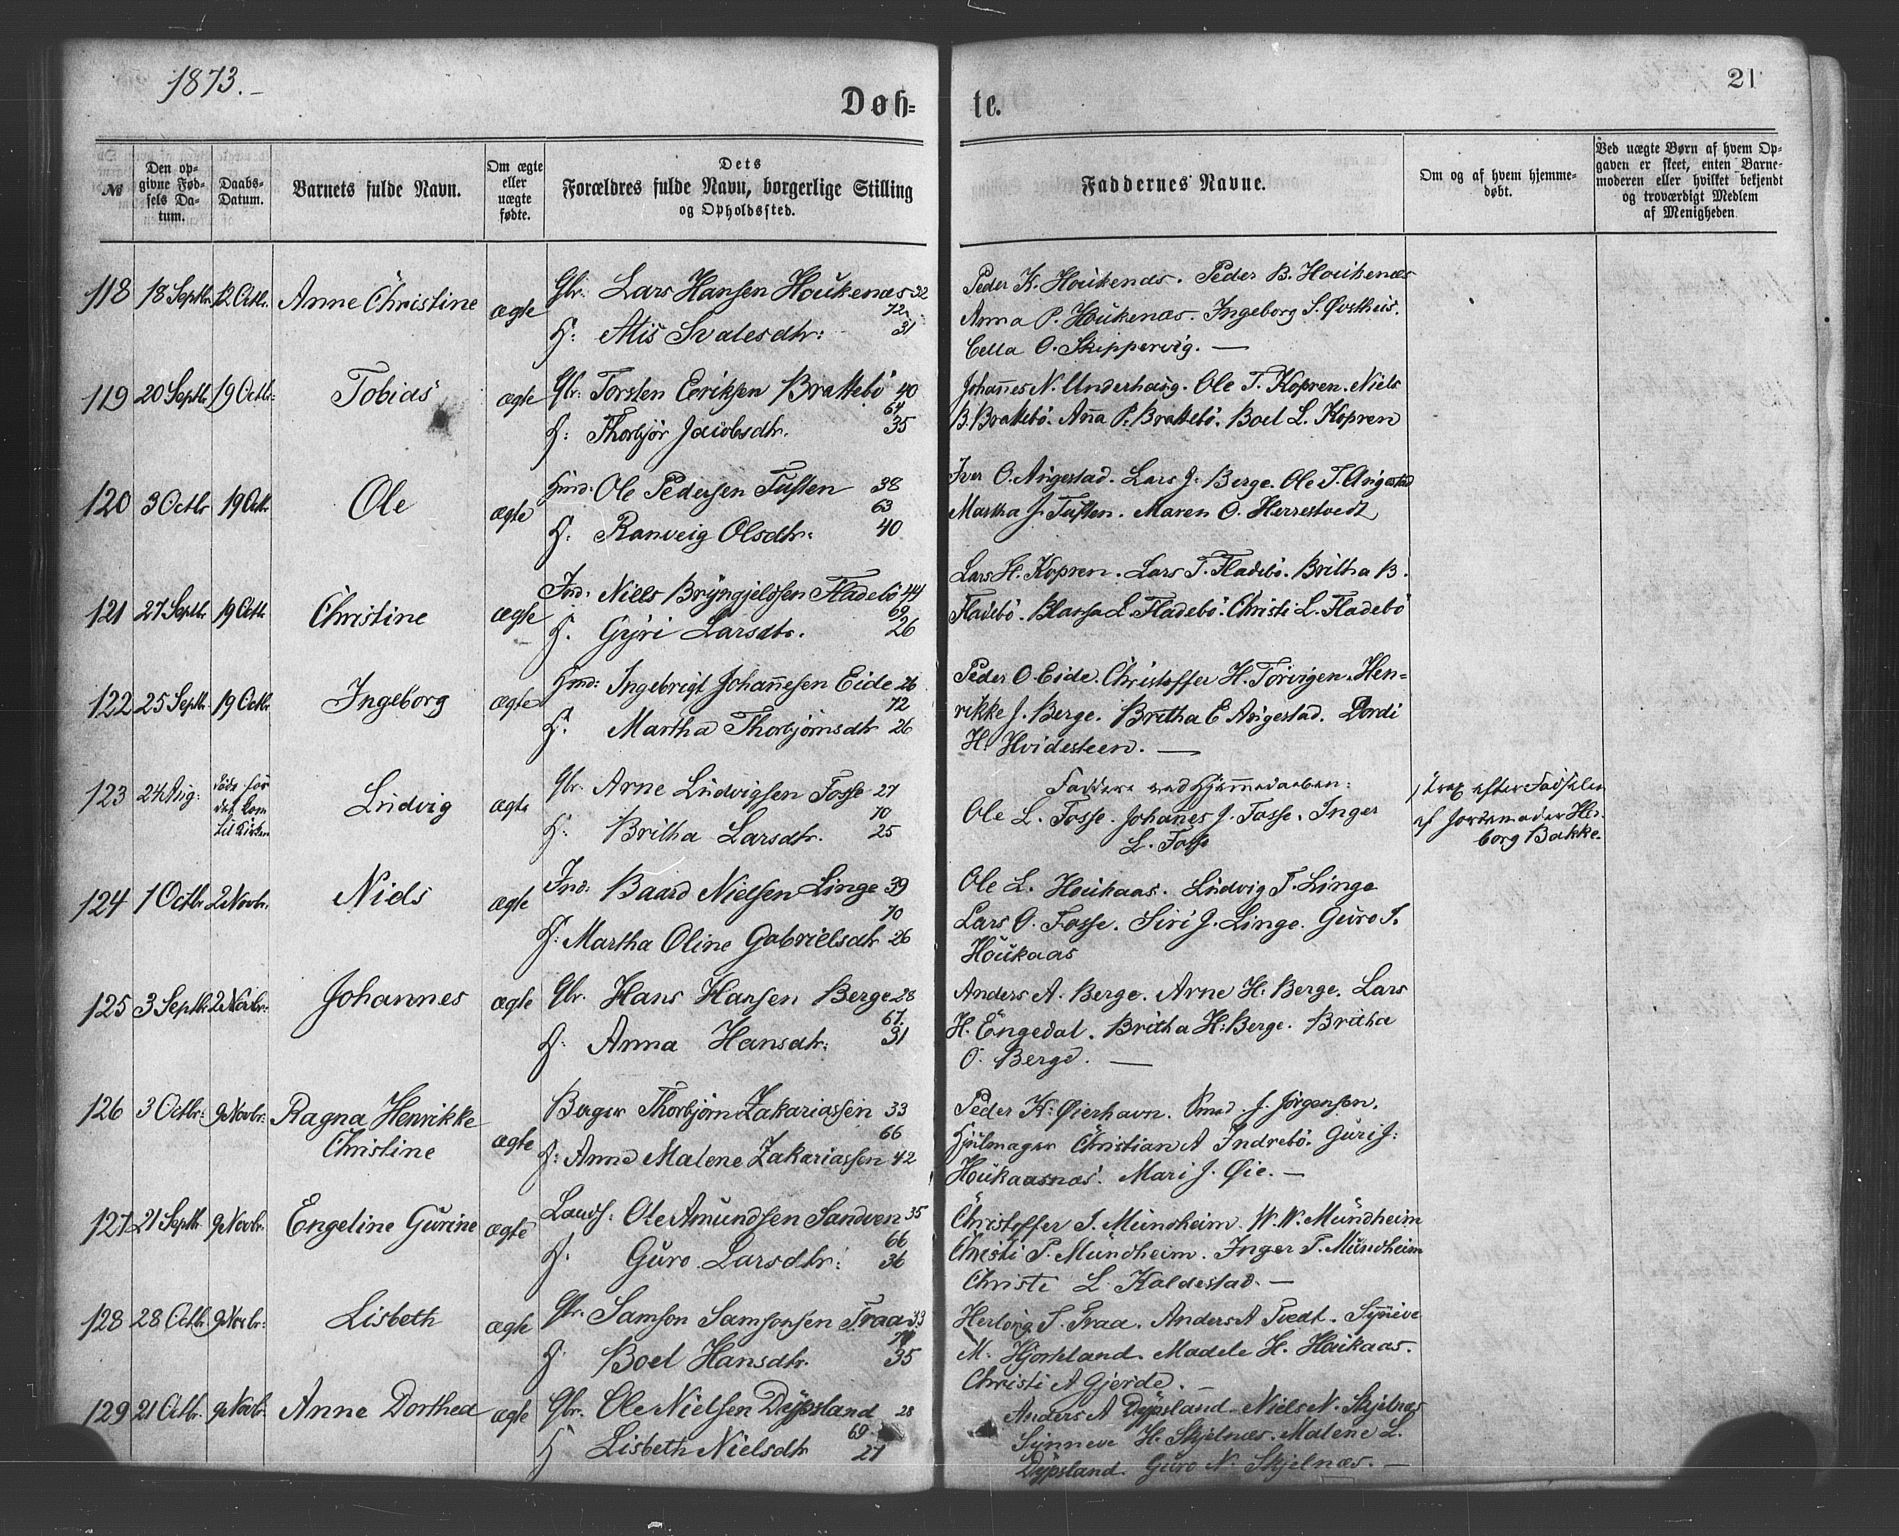 1873.-
21
Døb-
te.
№
Den op-
givne Fød-
sels Da-
tum.
Daabs-
Datum.
Barnets fulde Navn.
Om ægte
eller
uægte
fødte.
Dets
Forældres fulde Navn, borgerlige Stilling
og Opholdssted.
Faddernes Navne.
Om og af hvem hjemme-
døbt.
Ved uægte Børn af hvem Op-
gaven er skeet, enten Barne-
moderen eller hvilket bekjendt
og troværdigt Medlem
af Menigheden
118 18 Septbr. 12 Octbr. Anne Christine ægte
Gbr. Lars Hansen Houkenæs 32
72
H: Atis Svalesdtr: 31
Peder K. Houkenæs. Peder B. Houkenæs
Anna P. Houkenæs. Ingeborg S. Østheis.
Cella O. Skippervig. —
119 20 Septbr 19 Octbr: Tobias ægte
Gbr: Torsten Eeriksen Brattebö 40
64
H: Thorbjør Jacobsdtr. 35
Johannes N. Underhaug. Ole T. Kopren. Niels
B. Brattebö. Anna P. Brattebö. Boel L. Kopren
120 3 Octbr 19 Octbr. Ole ægte
Hmd: Ole Pedersen Tuften 38
63
H: Ranveig Olsdtr: 40
Iver O. Augestad. Lars J. Berge. Ole T. Augestad
Martha J. Tuften. Maren O. Herrestvedt
121 27 Septbr 19 Octb. Christine ægte
Ind: Niels Bryngjelssen Fladebö 44
69
H. Gyri Larsdtr. 26
Lars H. Kopren. Lars T. Fladebö. Britha B.
Fladebö. L. Fladebö. Christi L. Fladebö
122 25 Septbr 19 Octbr Ingeborg ægte
Hmd: Ingebrigt Johannesen Eide 26
72
H. Martha Thorbjörnsdtr 26
Peder O Eide. Christoffer H. Törvigen. Hen-
rikke J. Berge. Britha E Augestad. Dordi
H. Hvidesteen. —
123 24 Aug: döde før
det kom
til Kirken Ludvig ægte
Gbr. Arne Ludvigsen Fosse 27
70
H: Britha Larsdtr. 25
Faddere ved Hjemmedaaben:
Ole L. Fosse. Johannes J. Fosse. Inger
L. Fosse
strax efter Fødselen
af Jordemoder Her-
borg Bakke.
124 1 Octbr 2 Novbr. Niels ægte
Ind: Baard Nielsen Linge 39
70
H: Martha Oline Gabrielsdtr 26
Ole L. Houkaas. Ludvig T. Linge
Lars O. Fosse. Siri J. Linge. Guro I.
Houkaas
125 3 Septbr 2 Novbr: Johannes ægte
Gbr. Hans Hansen Berge 28
67.
H: Anna Hansdtr: 31
Anders A. Berge. Arne H. Berge. Lars
H. Engedal. Britha H: Berge. Britha
O. Berge. —
126 3 Octbr: 9 Novbr: Ragna Henrikke
Christine ægte
Berger Thorbjörn Zakariassen 33
66
H: Anne Malene Zakariassen 42
Peder K. Øierhavn. Smed. J. Jörgensen.
Hjulmager Christian A Indrebö. Guri J:
Houkaasnæs. Mari J. Øie. —
127 21 Septbr 9 Novbr. Engeline Gurine ægte
Ole Amundsen Sandven 35
66
H. Guro Larsdtr: 36
Christoffer J. Mundheim. W. W. Mundheim
Christi P. Mundheim. Inger T. Mundheim
Christi L Kaldestad. —
128 28 Octbr 9 Novbr: Lisbeth ægte
Gbr. Samson Samsonsen Traa 33
H Boel Hansdtr. 35
Herlong S. Traa. Anders A Tvedt. Synneve
M. Hjorteland. Madele H. Haukaas.
Christi A Gjerde. —
129 21 Octbr. 9 Novbr. Anne Dorthea ægte
Gbr. Ole Nielsen Dÿpsland 28
69.
H Lisbeth Nielsdtr 27
Anders A Dÿpsland. Niels N. Skjelnæs
Synneve H. Skjelnæs. Malene L.
Dÿpsland. Guro N. Skjelnæs. —